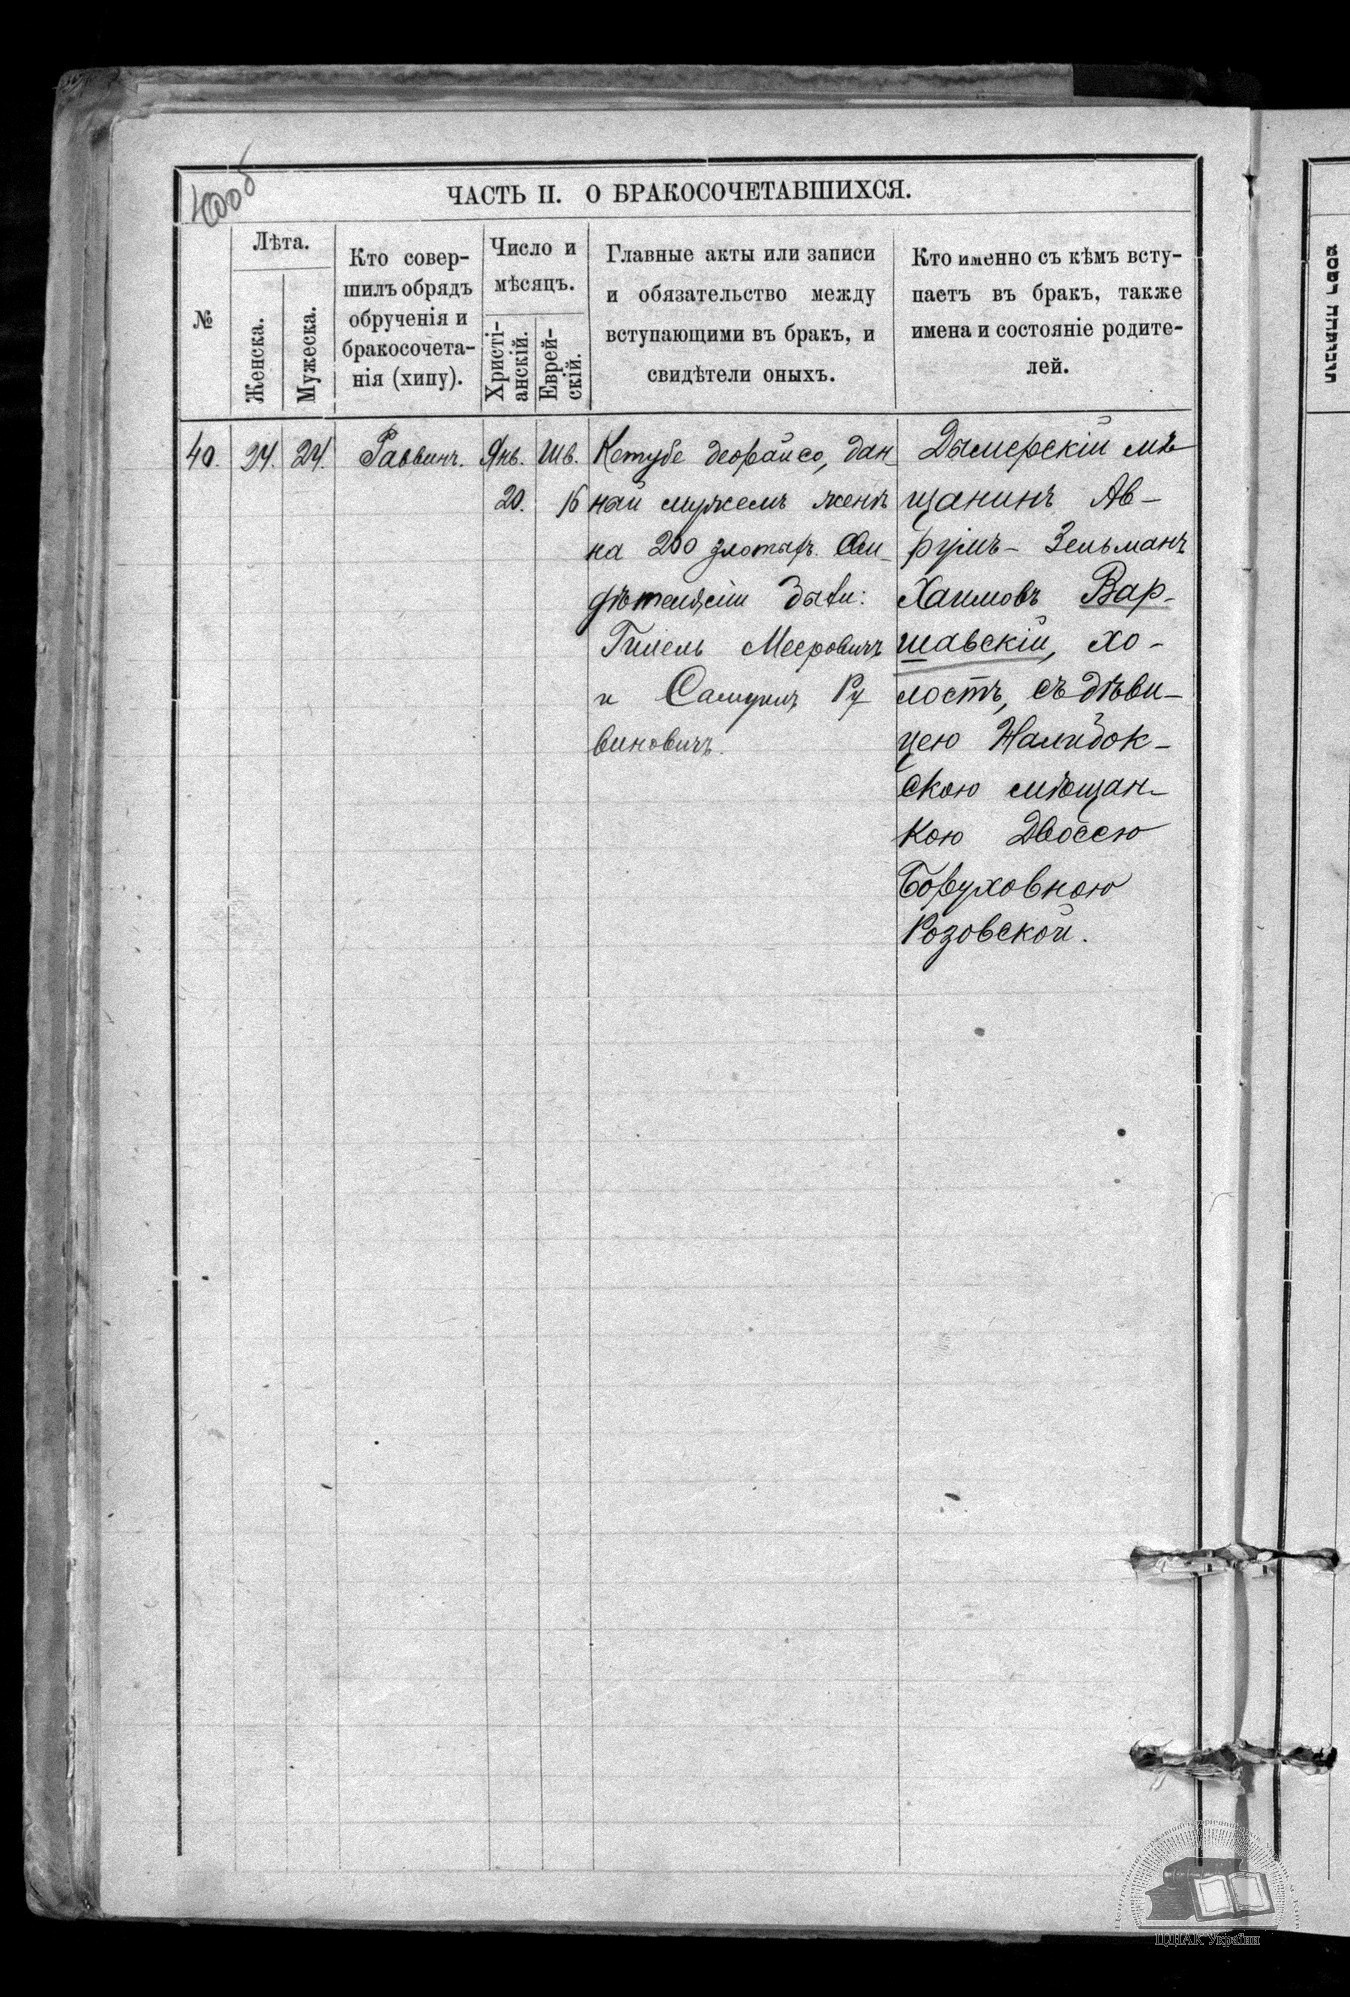 400б
ЧАСТЬ II. О БРАКОСОЧЕТАВШИХСЯ.
№
Лѣта.
Женска.
Мужеска.
Кто совер-
шилъ обрядъ
обрученія и
бракосочета-
нія (хипу).
Число и
мѣсяцъ.
Христі-
анскій.
Еврей-
скій.
Главные акты или записи
и обязательство между
вступающими въ бракъ, и
свидѣтели оныхъ.
Кто именно съ кѣмъ всту-
паетъ въ бракъ, также
имена и состояніе родите-
лей.
40.
24.
24.
Раввинъ.
Янв.
20.
Шв.
16
Кетубе деорайсо, дан-
ная мужемъ женѣ
на 200 злотыхъ. Сви-
дѣтелями были:
Гилель Мееровичъ
и Самуилъ Ру
виновичъ.
Дымерскій мѣ
щанинъ Ав-
румъ - Зельманъ
Хаимовъ Вар-
шавскій, хо-
лостъ, съ дѣви-
цею Налибок-
скою мѣщан-
кою Двоссю
Боруховною
Розовской.
ЦДІАК України